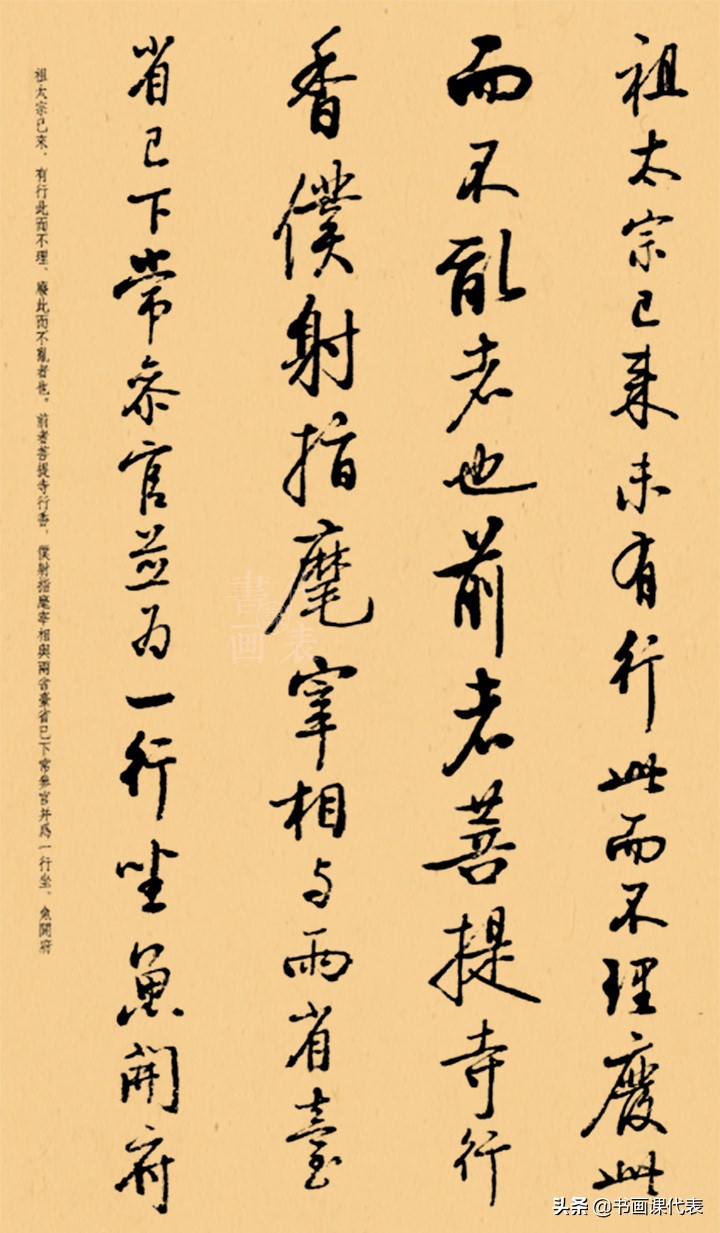 祖太宗已来未有行此而不理廢此
而不亂者也前者菩提寺行
香僕射指麾宰相与兩省臺
省已下常参官並为一行坐魚開府
祖太宗已來、有行此而不理、廢此而不亂者也。前者菩提寺行香，僕射指麾宰相與兩省臺省已下常參官并爲一行坐、魚開府
書画课代表
头条 @书画课代表